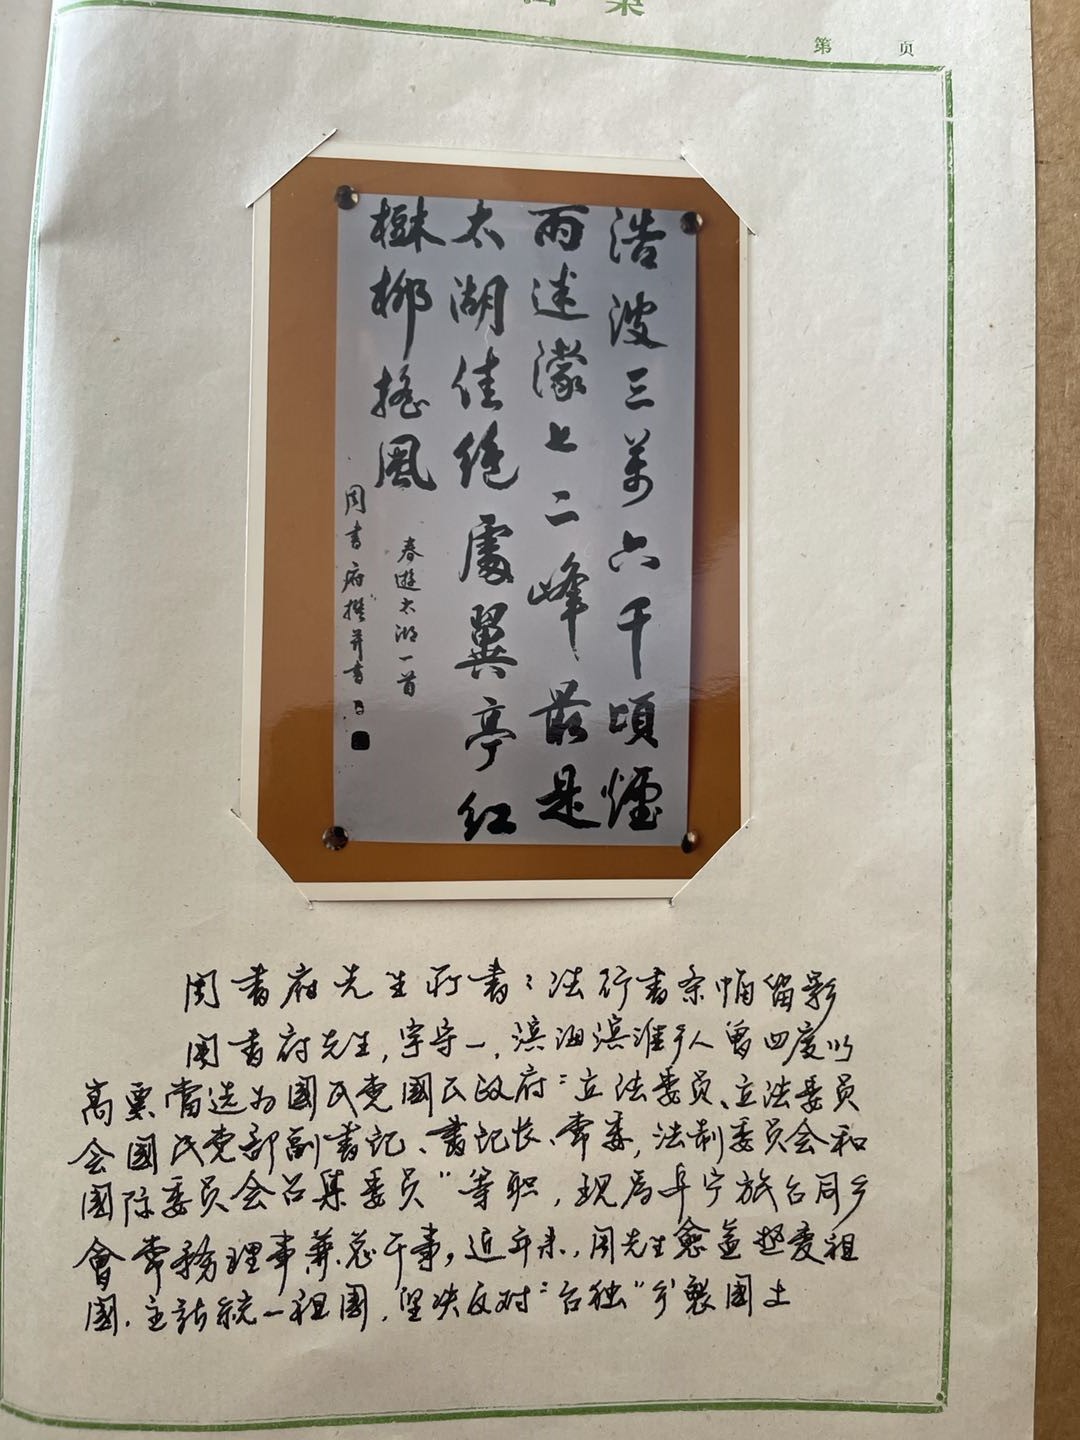 第 页
浩波三萬六千頃煙
雨迷濛七二峰最是
太湖佳絕處翼亭紅
樹柳搖風
春遊太湖一首
周书府撰并書
周书府先生所书：法行书条幅留影
周书府先生，字守一，滨海滨淮乡人曾四度以
高票当选为國民党國民政府“立法委员、立法委员
会國民党部副书记、书记长、常委，法制委员会和
國际委员会召集委员”等职，现为阜宁旅台同乡
會常務理事兼总干事，近年来，周先生愈益热爱祖
國，主张統一祖國，坚决反对“台独”分裂國土